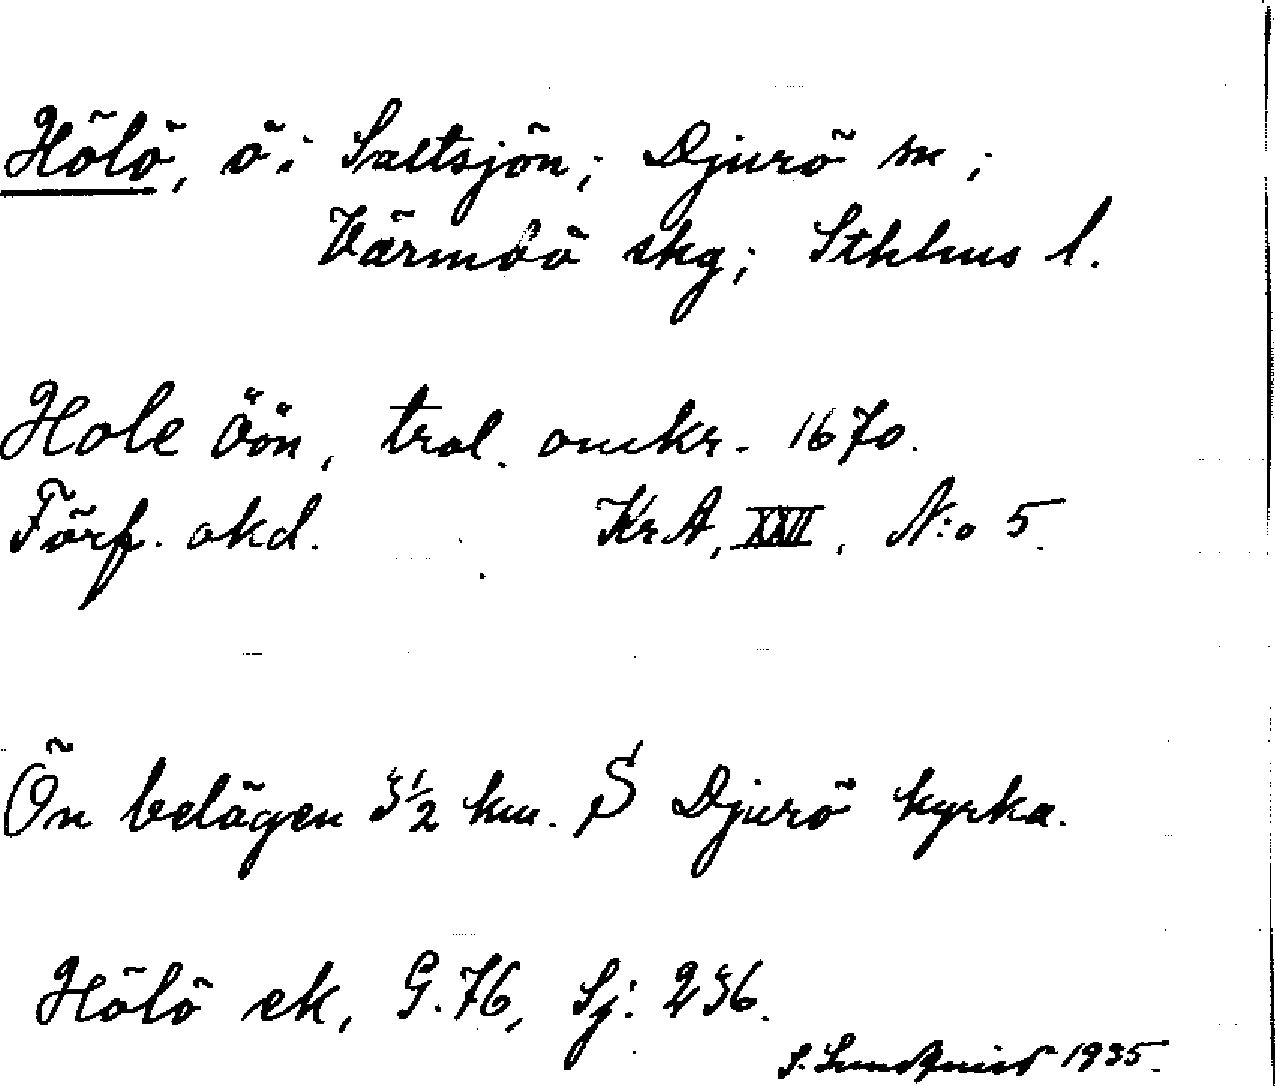 Hölö, ö i Saltsjön; Djurö sn;
Värmdö skg; Sthlms l.
Hole öön, trol. omkr. 1670.
Förf. okd. KrA, XXII, N:o 5.
Ön belägen 3½ km. S Djurö kyrka.
Hölö ek, G. 76, Sj: 236.
S. Lundquist 1935.